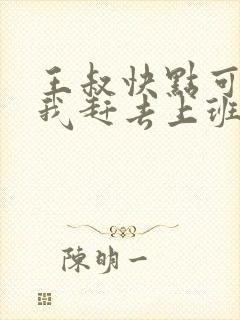 王叔快點可
我赶去上班
陳明一